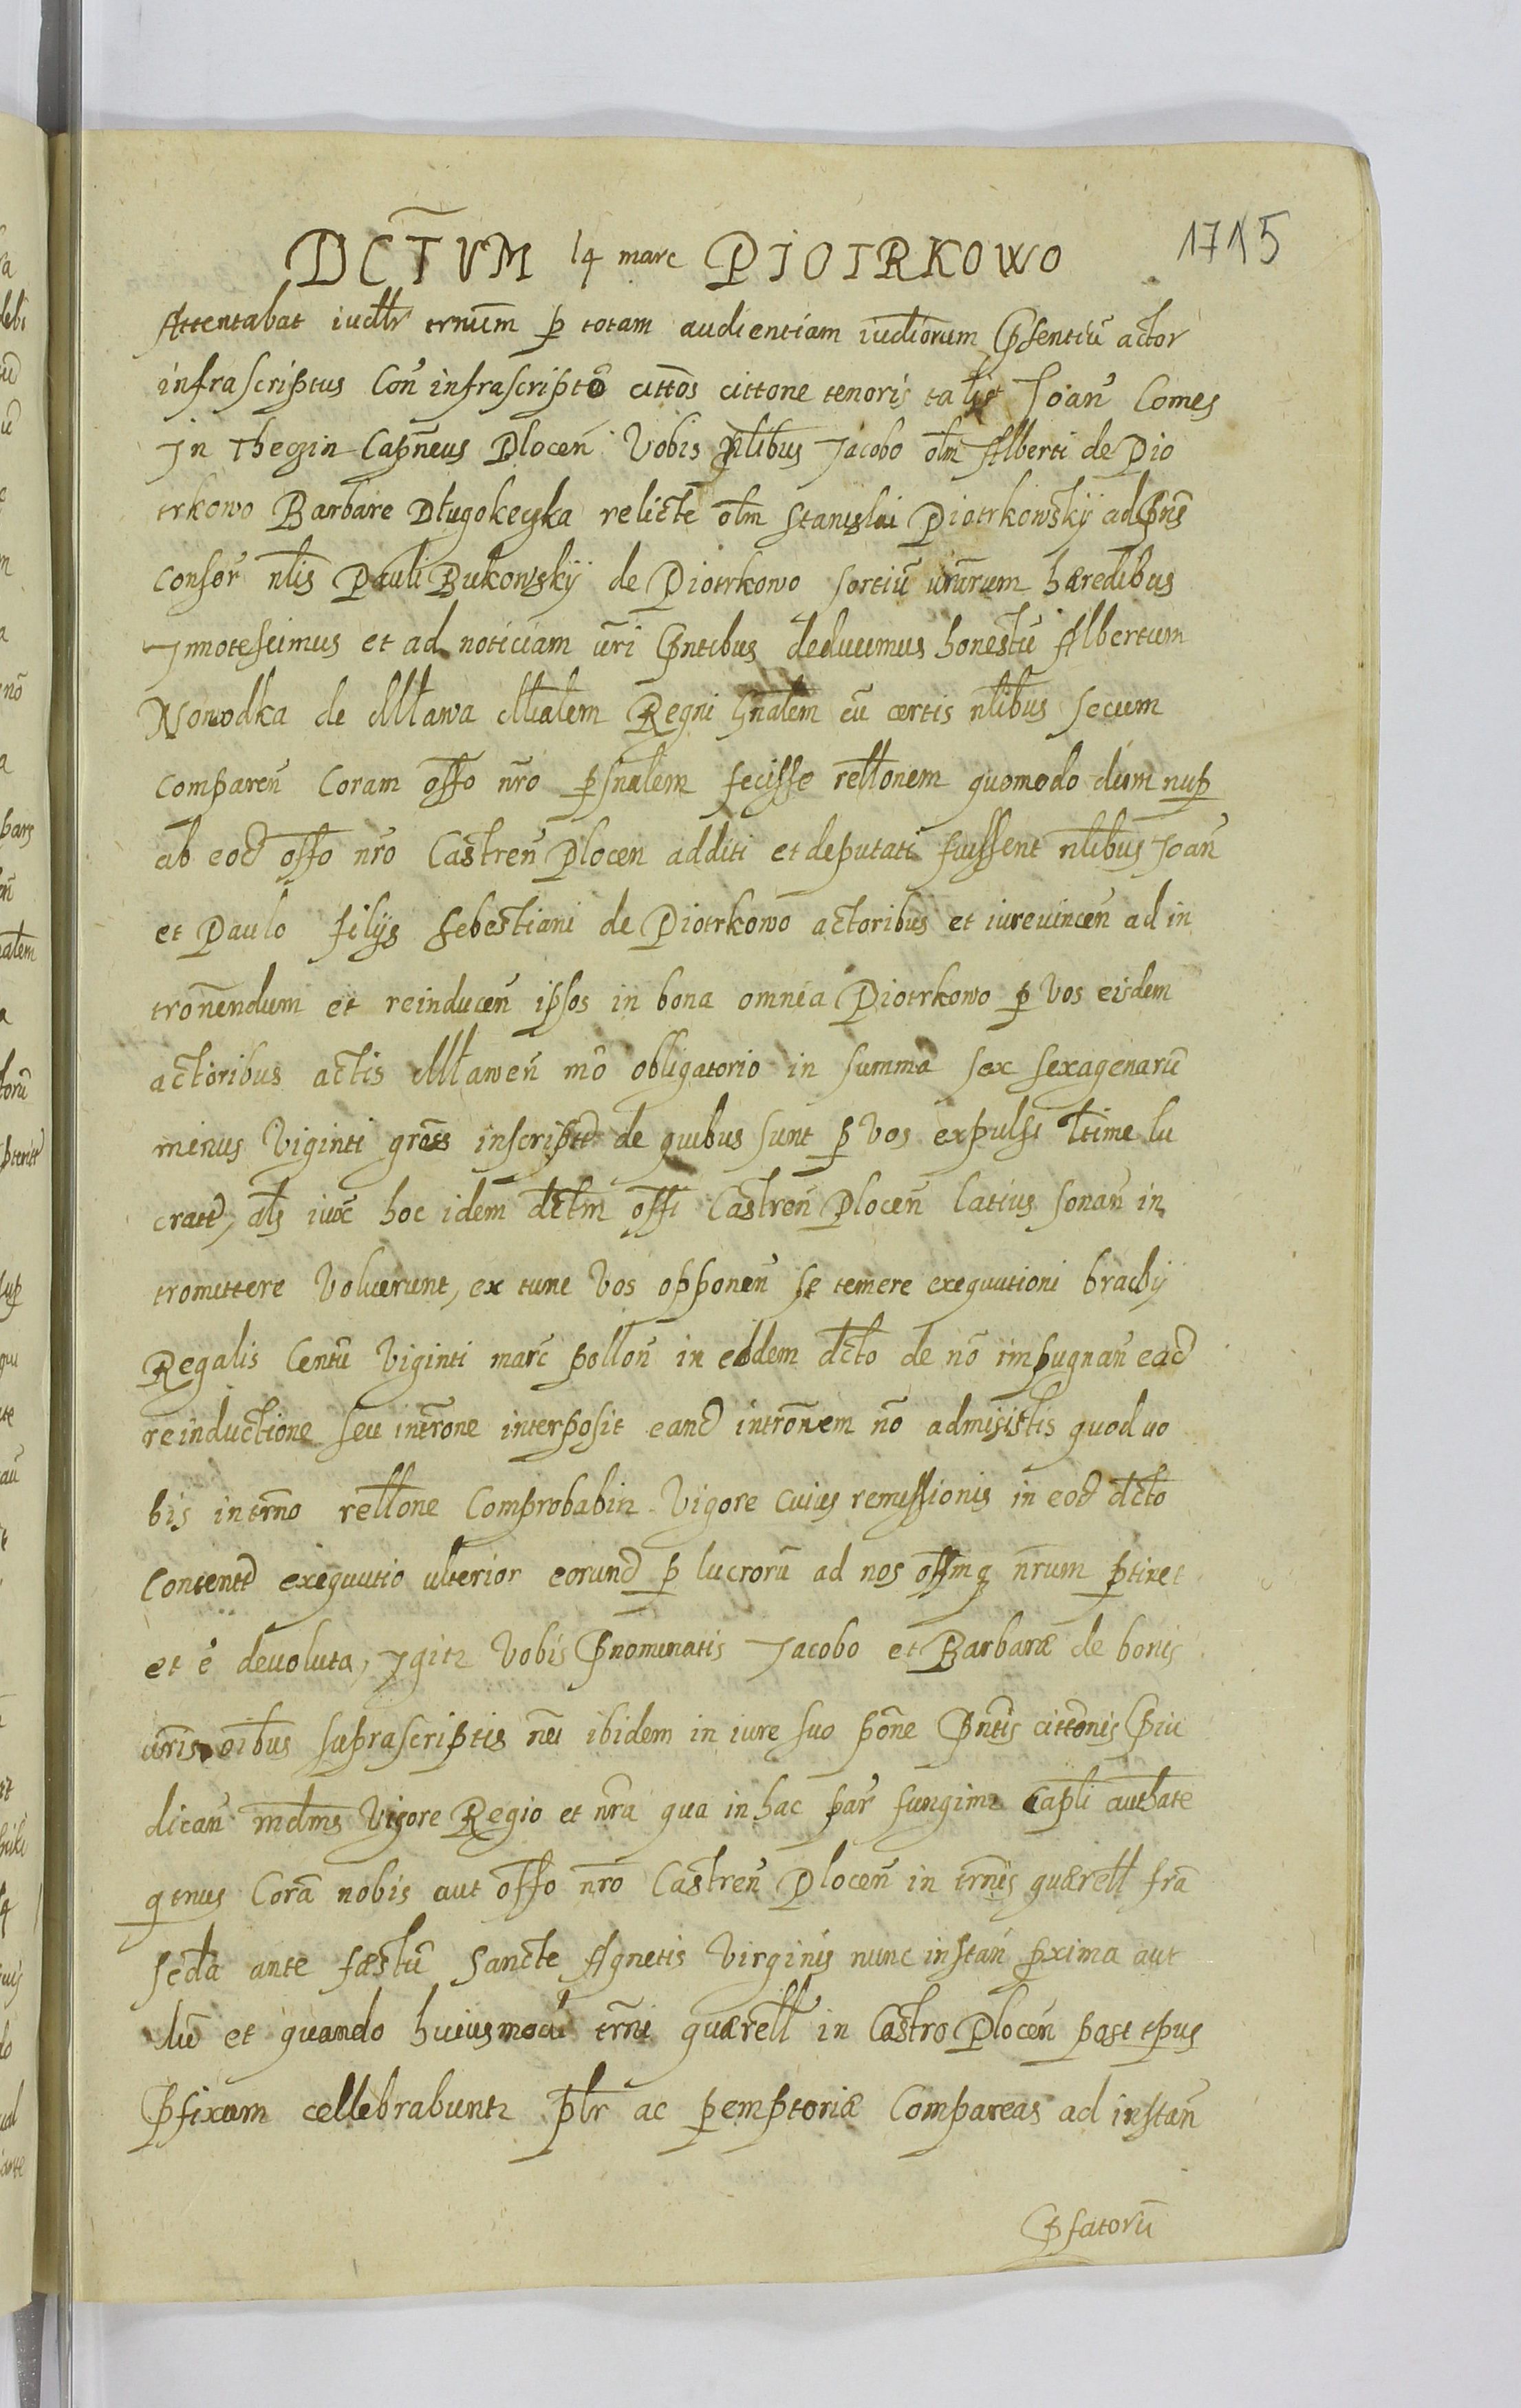 DCT̃VM 14 marc PIOTRKOWO 1715
Attentabat iudlr̃ trnũm p totam audientiam iudiorum Psentiũ actor
infrascriptus Con̄ infrascripto cittōs cittone tenoris talis Ioan̄ Comes
In Theczin Capn̄eus Plocen̄ Vobis nlibus Iacobo olm̄ Alberti de Pio
trkowo Barbare Długokęcka relictę olm̄ Stanislai Piotrkowskÿ ad pn̄s
consor̄ nlis Pauli Bukowskÿ de Piotrkowo sortiũ vrārum hæredibus
Innotescimus et ad noticiam vrī Pntibus deducimus honestũ Albertum
Nowodka de Mława Mialem Regni Gnālem cũ certis nlibus secum
comparen̄ Coram offo nrō psnalem fecisse rellonem quomodo dum nup
ab eod offo nrō Castren̄ Plocen additi et deputati fuissent nlibus Ioan̄
et Paulo filijs Sebestiani de Piotrkowo actoribus et iureuincen̄ ad in
tron̄endum et reinducen̄ ipsos in bona omnia Piotrkowo p Vos eisdem
actoribus actis Mławen̄ mō obligatorio in summa sex sexagenarũ
minus Viginti gross inscript de quibus sunt p Vos expulsi ltime lu
crat, als iuxᵗ hoc idem dctm̄ offi Castren̄ Plocen̄ latius sonan̄ in
tromittere Voluerunt, ex tunc Vos opponen̄ se temere exequutioni brachij
Regalis Centũ Viginti marc̄ pollon̄ in eodem dcto de nō impugnan̄ ead
reinductione seu intrōne interposit eand intrōnem nō admisistis quod uo
bis in trn̄o rellone Comprobabitr Vigore cuius remissionis in eod dcto
Content exequutio ulterior eorund p lucrorũ ad nos offmq nrūm ptinet
et ē deuoluta, Igitr Vobis Pnominatis Iacobo et Barbaræ de bonis
vrīs oibus suprascriptis nei ibidem in iure suo pōne Pntis cittonis Piu
dican̄ mdm̄s Vigore Regio et nrā qua in hac par̄ fungimr Capli authate
qtenus Corā nobis aut offo nrō Castren̄ Plocen̄ in trn̄is quærell frā
scdā ante fæstũ Sancte Agnetis Virginis nunc instan̄ pxima aut
dũ et quando huiusmodi trn̄i quærell in Castro Plocen̄ post tpus
Pfixum cellebrabuntr plr̄ ac pemptoriæ Compareas ad instan̄
Pfatorũ